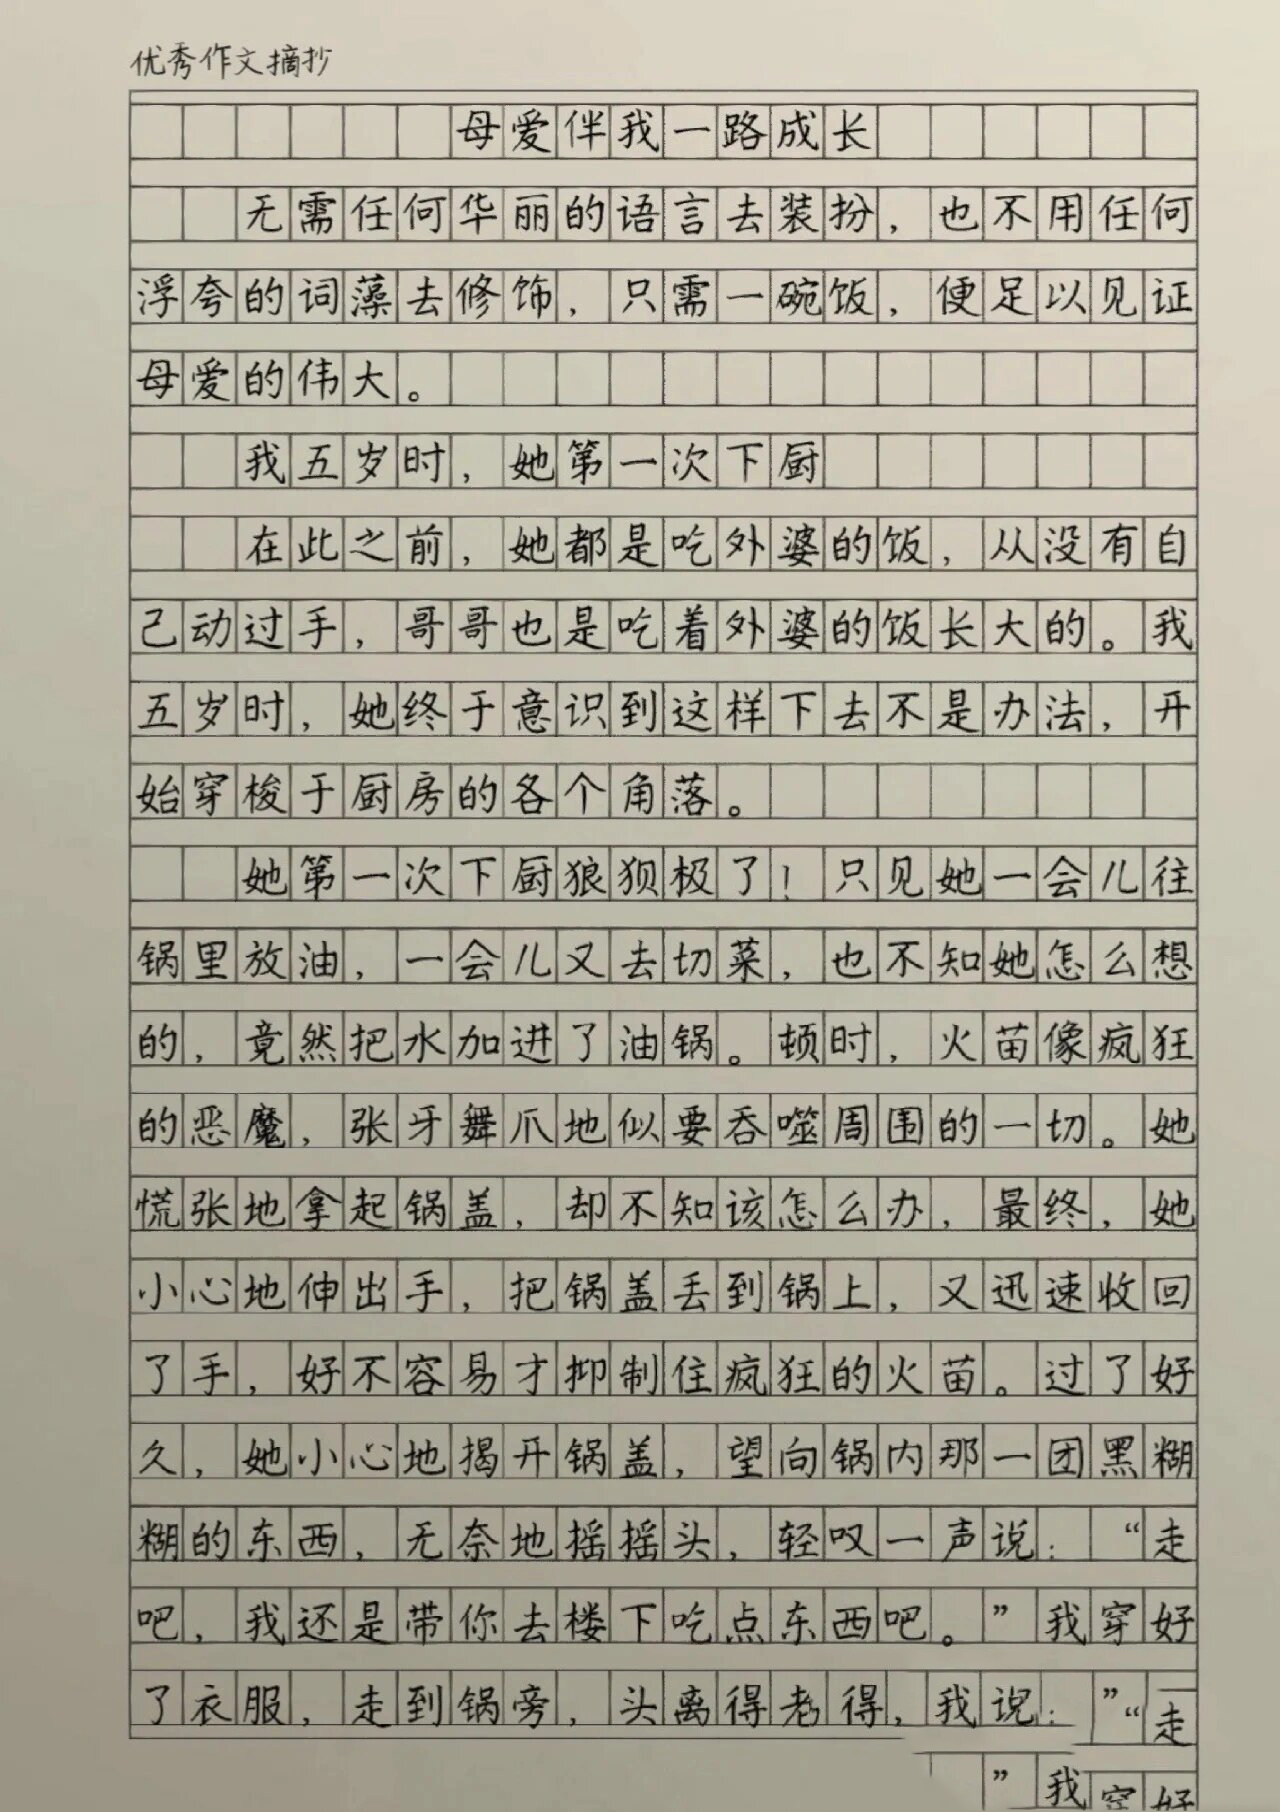 优秀作文摘抄
母爱伴我一路成长
无需任何华丽的语言去装扮，也不用任何
浮夸的词藻去修饰，只需一碗饭，便足以见证
母爱的伟大。
我五岁时，她第一次下厨
在此之前，她都是吃外婆的饭，从没有自
己动过手，哥哥也是吃着外婆的饭长大的。我
五岁时，她终于意识到这样下去不是办法，开
始穿梭于厨房的各个角落。
她第一次下厨狼狈极了！只见她一会儿往
锅里放油，一会儿又去切菜，也不知她怎么想
的，竟然把水加进了油锅。顿时，火苗像疯狂
的恶魔，张牙舞爪地似要吞噬周围的一切。她
慌张地拿起锅盖，却不知该怎么办，最终，她
小心地伸出手，把锅盖丢到锅上，又迅速收回
了手，好不容易才抑制住疯狂的火苗。过了好
久，她小心地揭开锅盖，望向锅内那一团黑糊
糊的东西，无奈地摇摇头，轻叹一声说：“走
吧，我还是带你去楼下吃点东西吧。”我穿好
了衣服，走到锅旁，头离得老得，我说：”“走
”我穿好